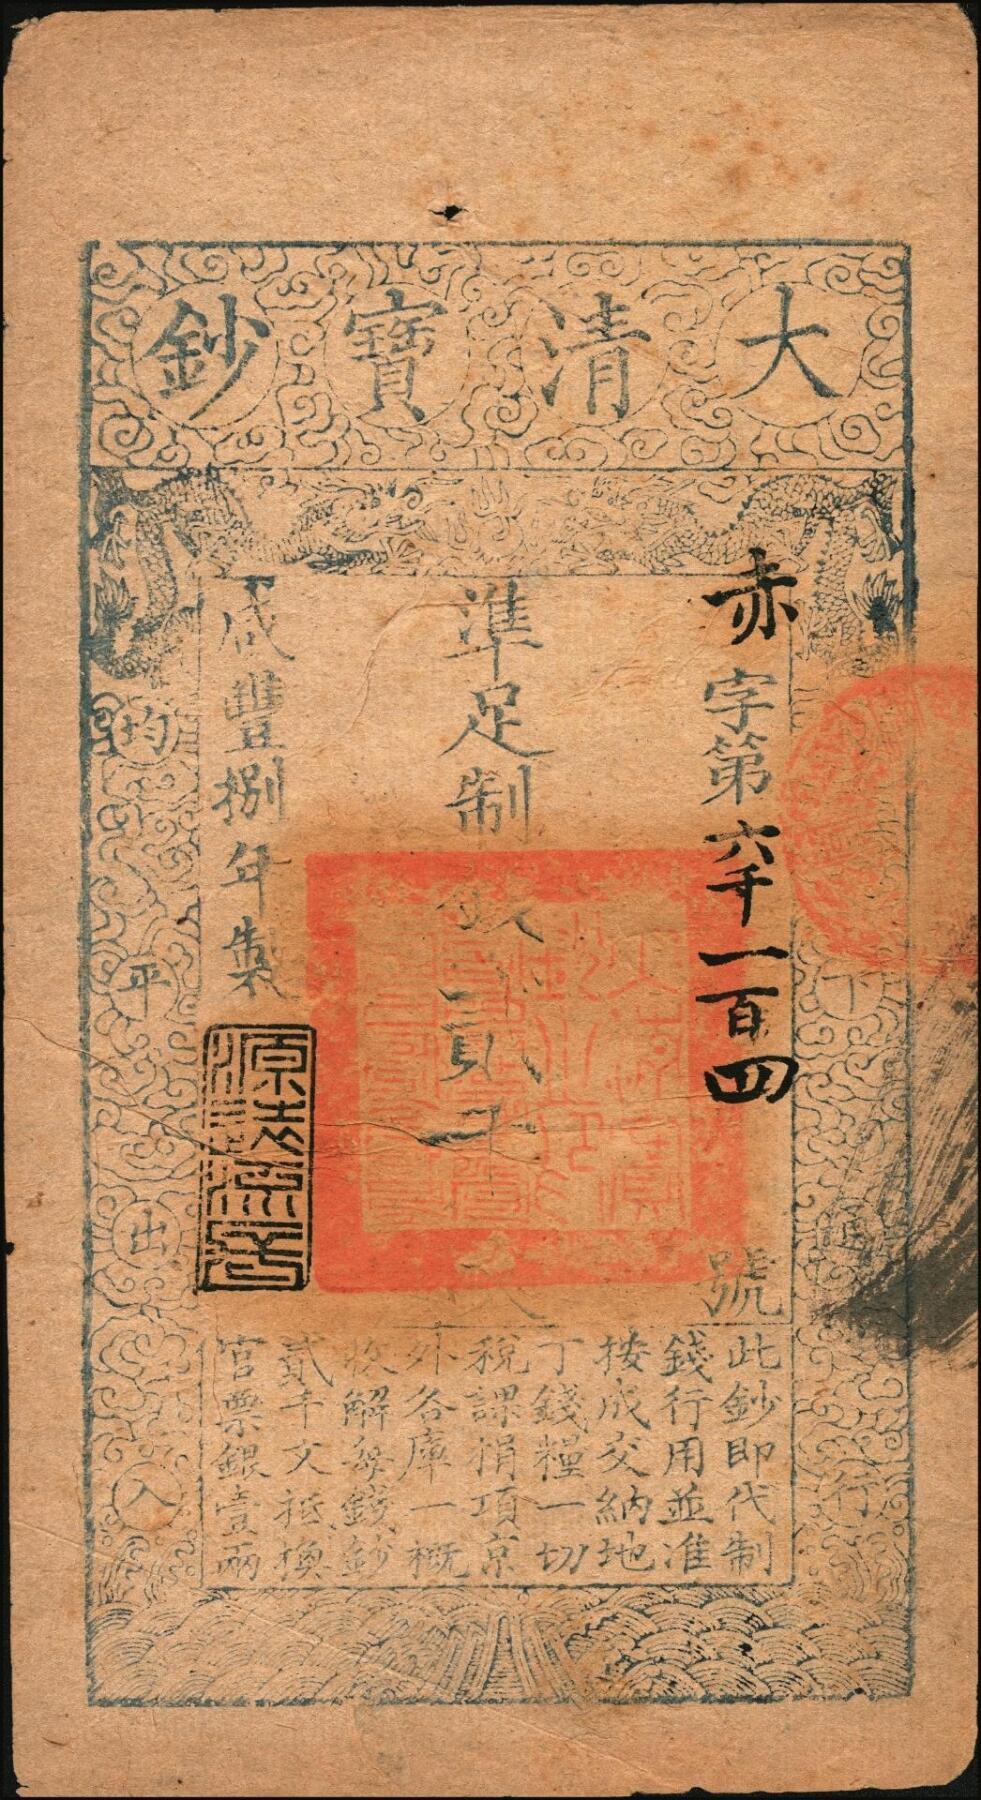 大清寶鈔
赤字第六千一百四號
準足制錢貳千文
咸豐捌年製
下通行
均平出入
此鈔即代制
錢行用並准
按成交納地
丁錢糧一切
稅課捐項京
外各庫一概
收解每錢鈔
貳千文抵換
官票銀壹兩